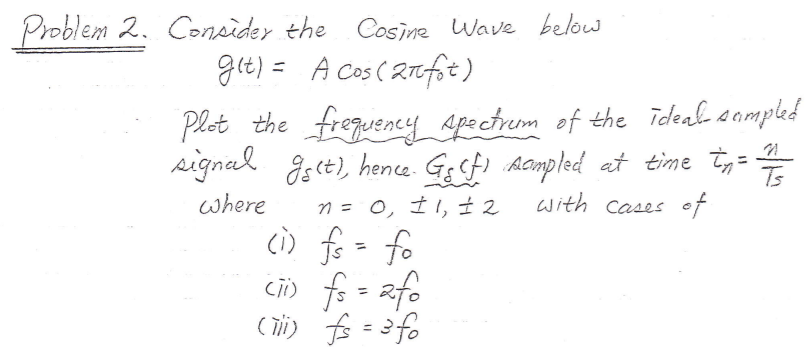 Problem 2. Consider the Cosine Wave below
g(t) = A cos(2πf₀t)
Plot the frequency spectrum of the ideal-sampled
signal g_δ(t), hence G_δ(f) sampled at time t_n = n/T_s
where n = 0, ±1, ±2 with cases of
(i) f_s = f₀
(ii) f_s = 2f₀
(iii) f_s = 3f₀